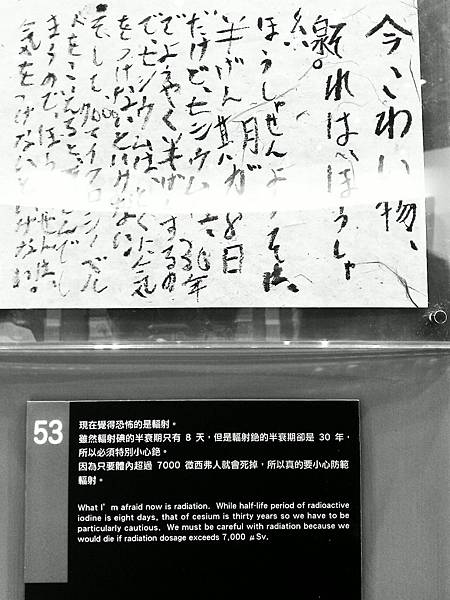 今こわい物、
それはほうしゃ
線。
ほうしゃせんようそは、
半げん期が8日
だけど、セシウムは、30年
でようやく半げんするの
でセシウムはとくに気
をつけないといけない。
そして、7000マイクロシーベル
トをこえると、死んでし
まうので、ほう
気をつけないといけない。
53
現在覺得恐怖的是輻射。
雖然輻射碘的半衰期只有 8 天，但是輻射銫的半衰期卻是 30 年，
所以必須特別小心銫。
因為只要體內超過 7000 微西弗人就會死掉，所以真的要小心防範
輻射。
What I'm afraid now is radiation. While half-life period of radioactive
iodine is eight days, that of cesium is thirty years so we have to be
particularly cautious. We must be careful with radiation because we
would die if radiation dosage exceeds 7,000 μSv.